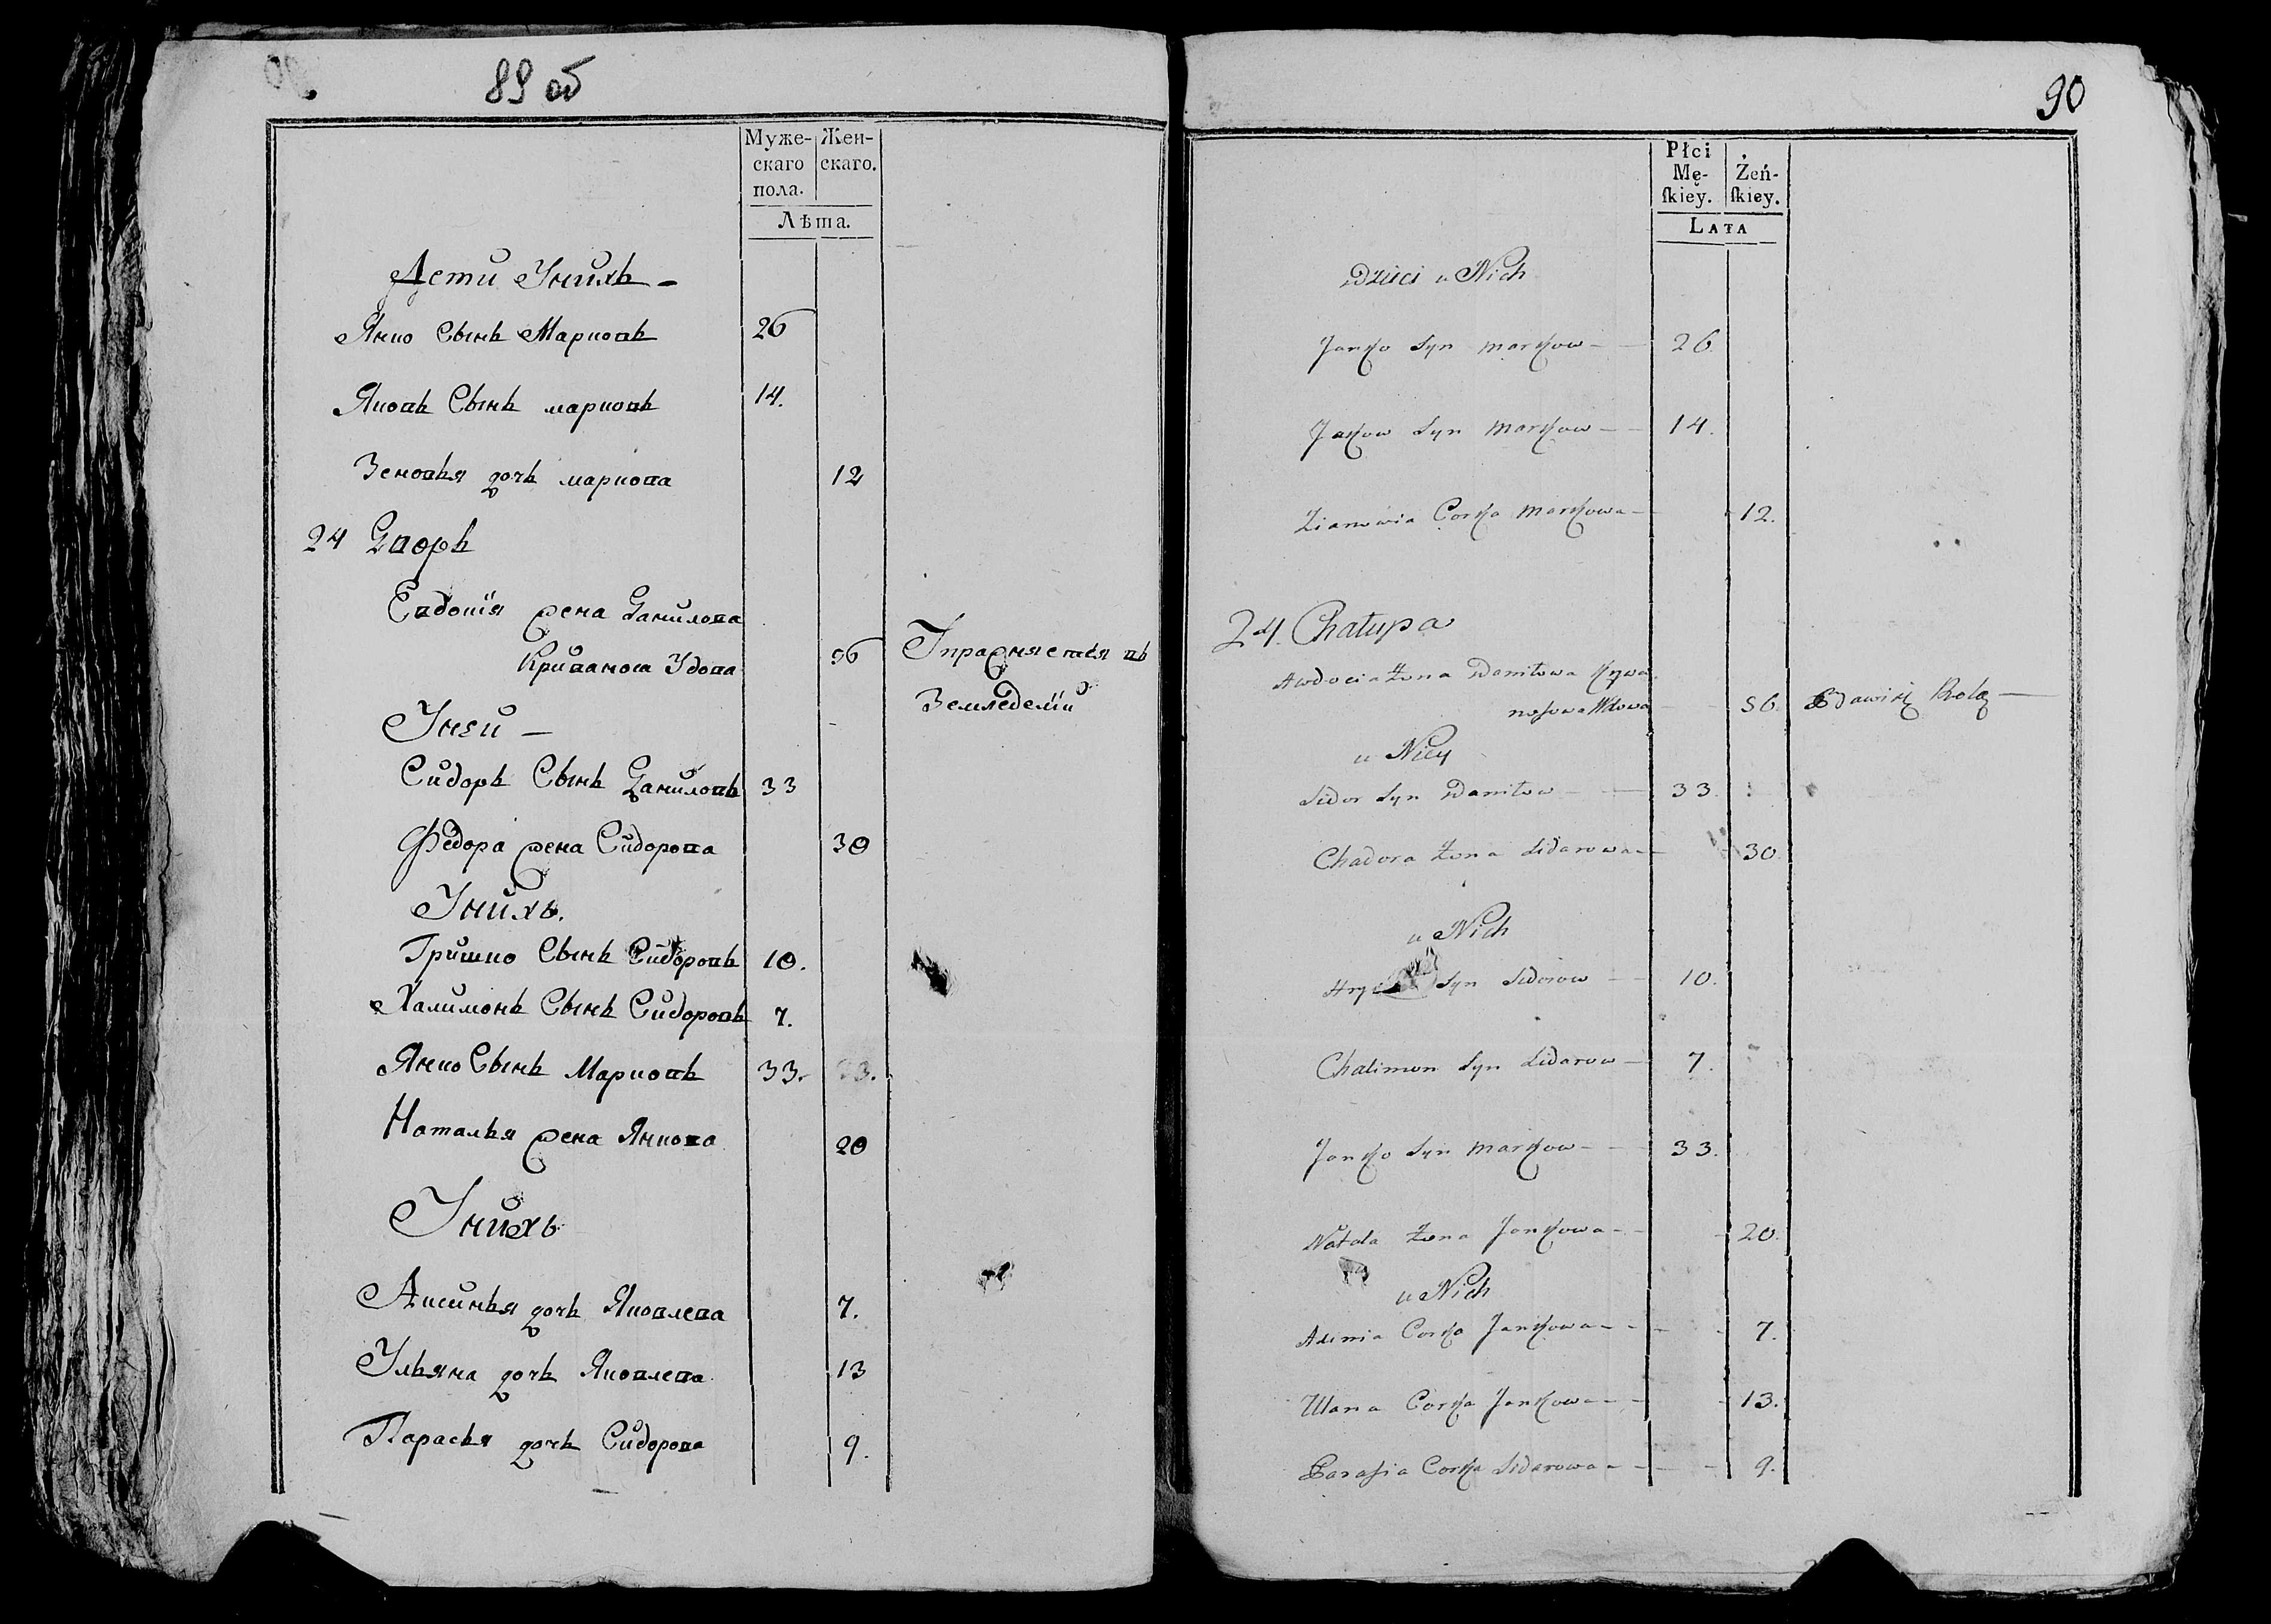 89 об
Муже- Жен-
скаго скаго.
пола.
Лѣта.
Дети Унихъ -
Янко Сынъ Марковъ 26
Яковъ Сынъ марковъ 14.
Зеновья дочь маркова 12
24 Дворъ
Евдокия жена Данилова
Вдова 56 Упражняется въ
Земледелии
Уней -
Сидоръ Сынъ Даниловъ 33
Федора жена Сидорова 30
Унихъ.
Гришко Сынъ Сидоровъ 10.
Халимонъ Сынъ Сидоровъ 7.
Янко Сынъ Марковъ 33. 33.
Наталья жена Янкова 20
Унихъ
Аксинья дочь Яковлева 7.
Ульяна дочь Яковлева 13
Парасья дочь Сидорова 9.
90
Płci
Mę- Żeń-
ſkiey. ſkiey.
LATA
Dzieci u Nich
Janko Syn Markow - 26
Jakow Syn Markow - 14.
Zianowia Corka Markowa - 12.
24. Chałupa
Awdocia Żona Daniłowa Krywa
nosowa Wdowa 56. Bawi się Rolą -
u Niey
Sidor Syn Daniłow - 33.
Chadora Żona Sidarowa - 30.
u Nich
Syn Sidorow - 10.
Chalimon Syn Sidarow - 7.
Janko Syn Markow - 33.
Natala Żona Jankowa - 20.
u Nich
Axinia Corka Jankowa - 7.
Ulana Corka Jankowa - 13.
Parasia Corka Sidarowa - 9.